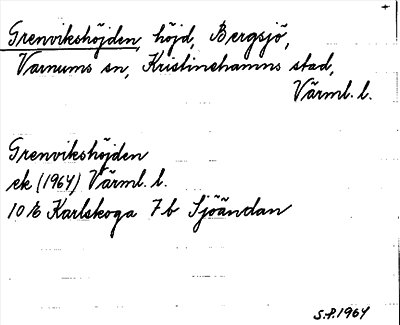 Grenvikshöjden, höjd, Bergsjö,
Varnums sn, Kristinehamns stad,
Värml. l.
Grenvikshöjden
ek (1964) Värml. l.
10 E Karlskoga 7b Sjöändan
S.P. 1964